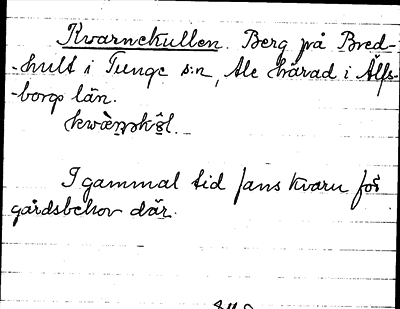 Kvarnekullen. Berg på Bred-
-hult i Tunge s:n, Ale härad i Älfs-
-borgs län.
I gammal tid fans kvarn för
gårdsbehov där.